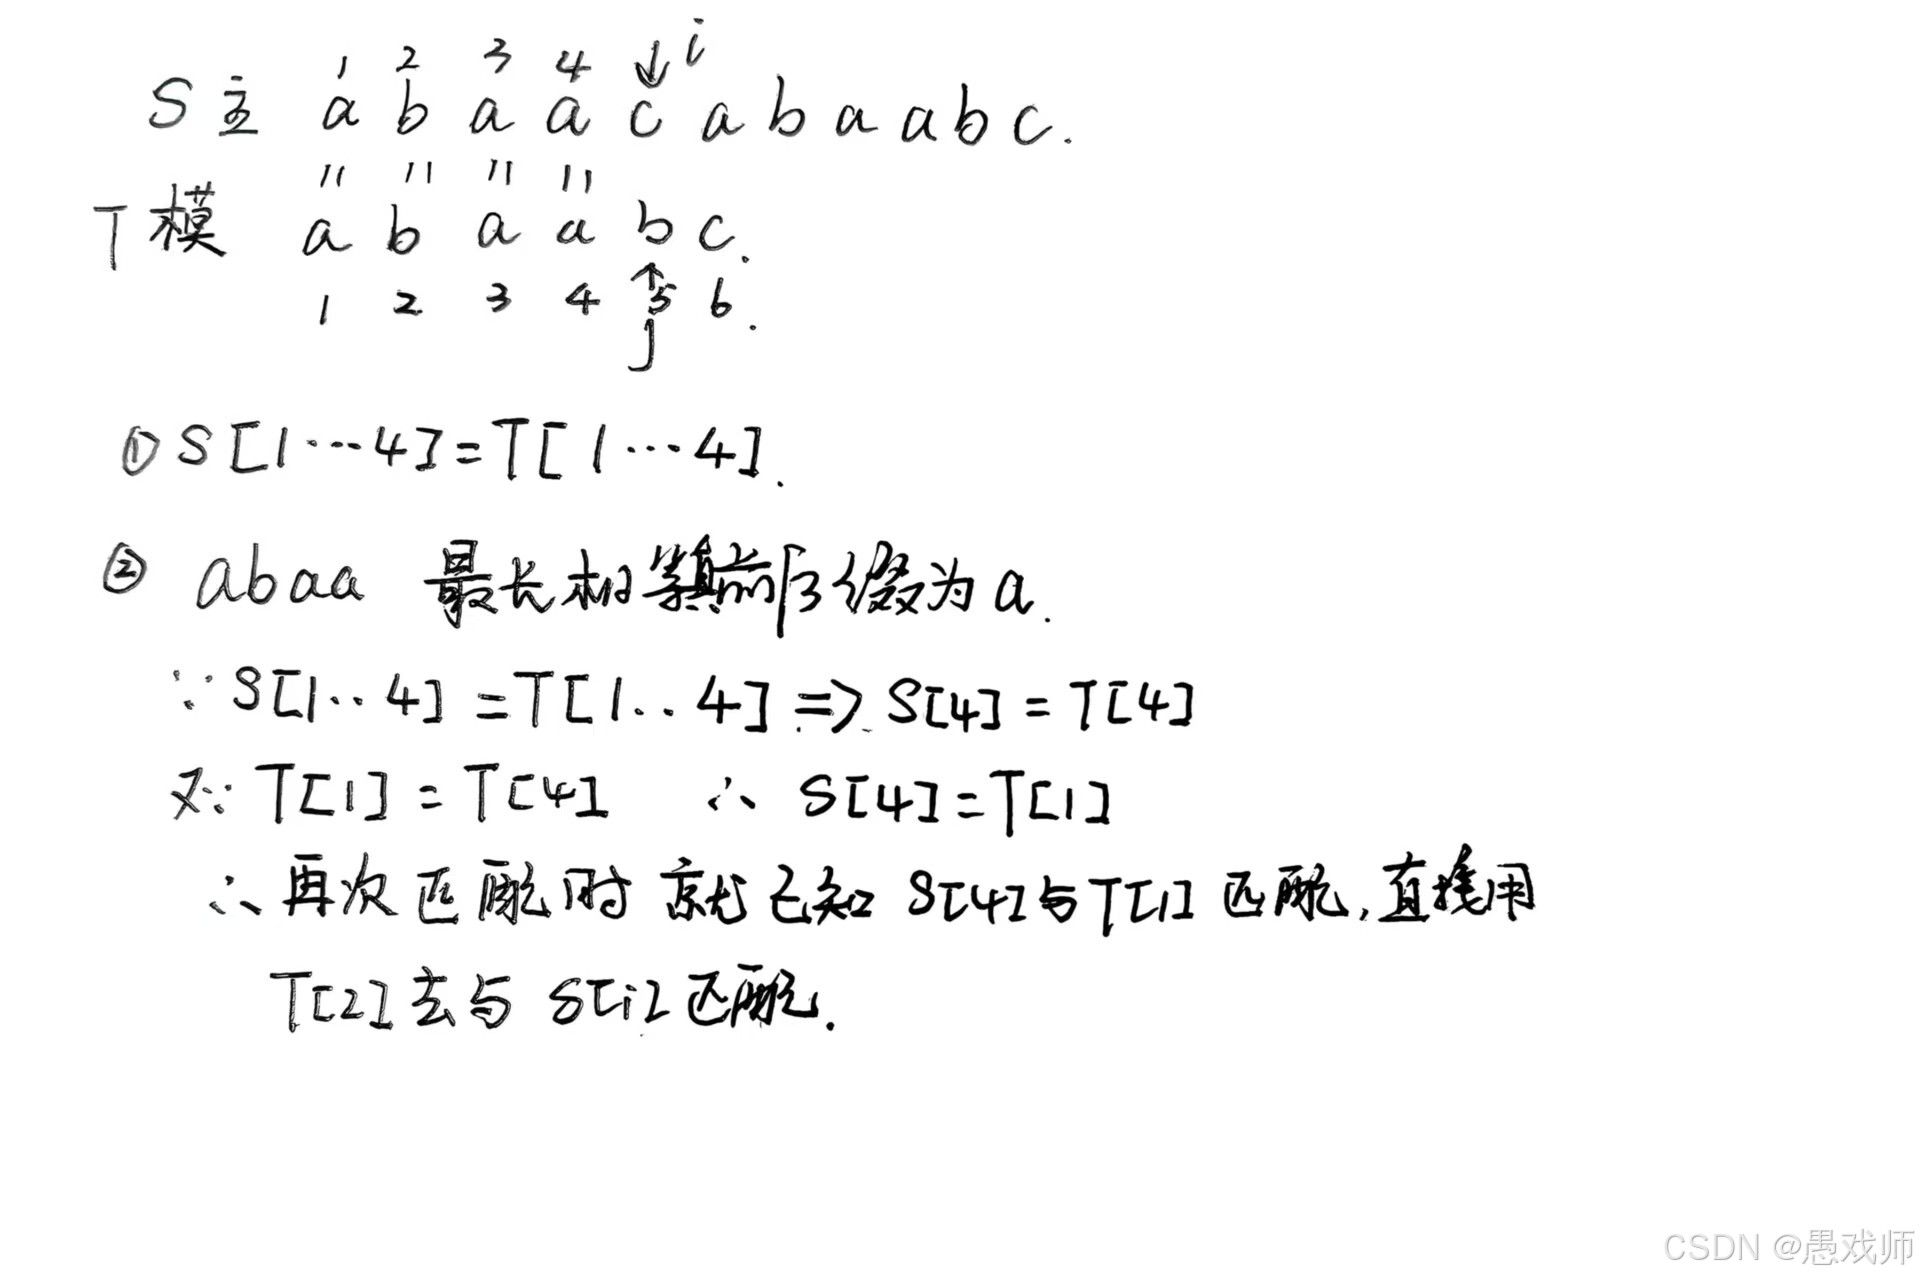 1 2 3 4 ↓ i
S主 a b a a c a b a a b c.
|| || || ||
T模 a b a a b c.
1 2 3 4 5 6.
↑ j
① S[1…4]=T[1…4].
② abaa 最长相等真前后缀为a.
∵ S[1..4]=T[1..4] => S[4]=T[4]
又∵ T[1]=T[4] ∴ S[4]=T[1]
∴ 再次匹配时就已知S[4]与T[1]匹配,直接用
T[2]去与S[i]匹配.
CSDN @愚戏师